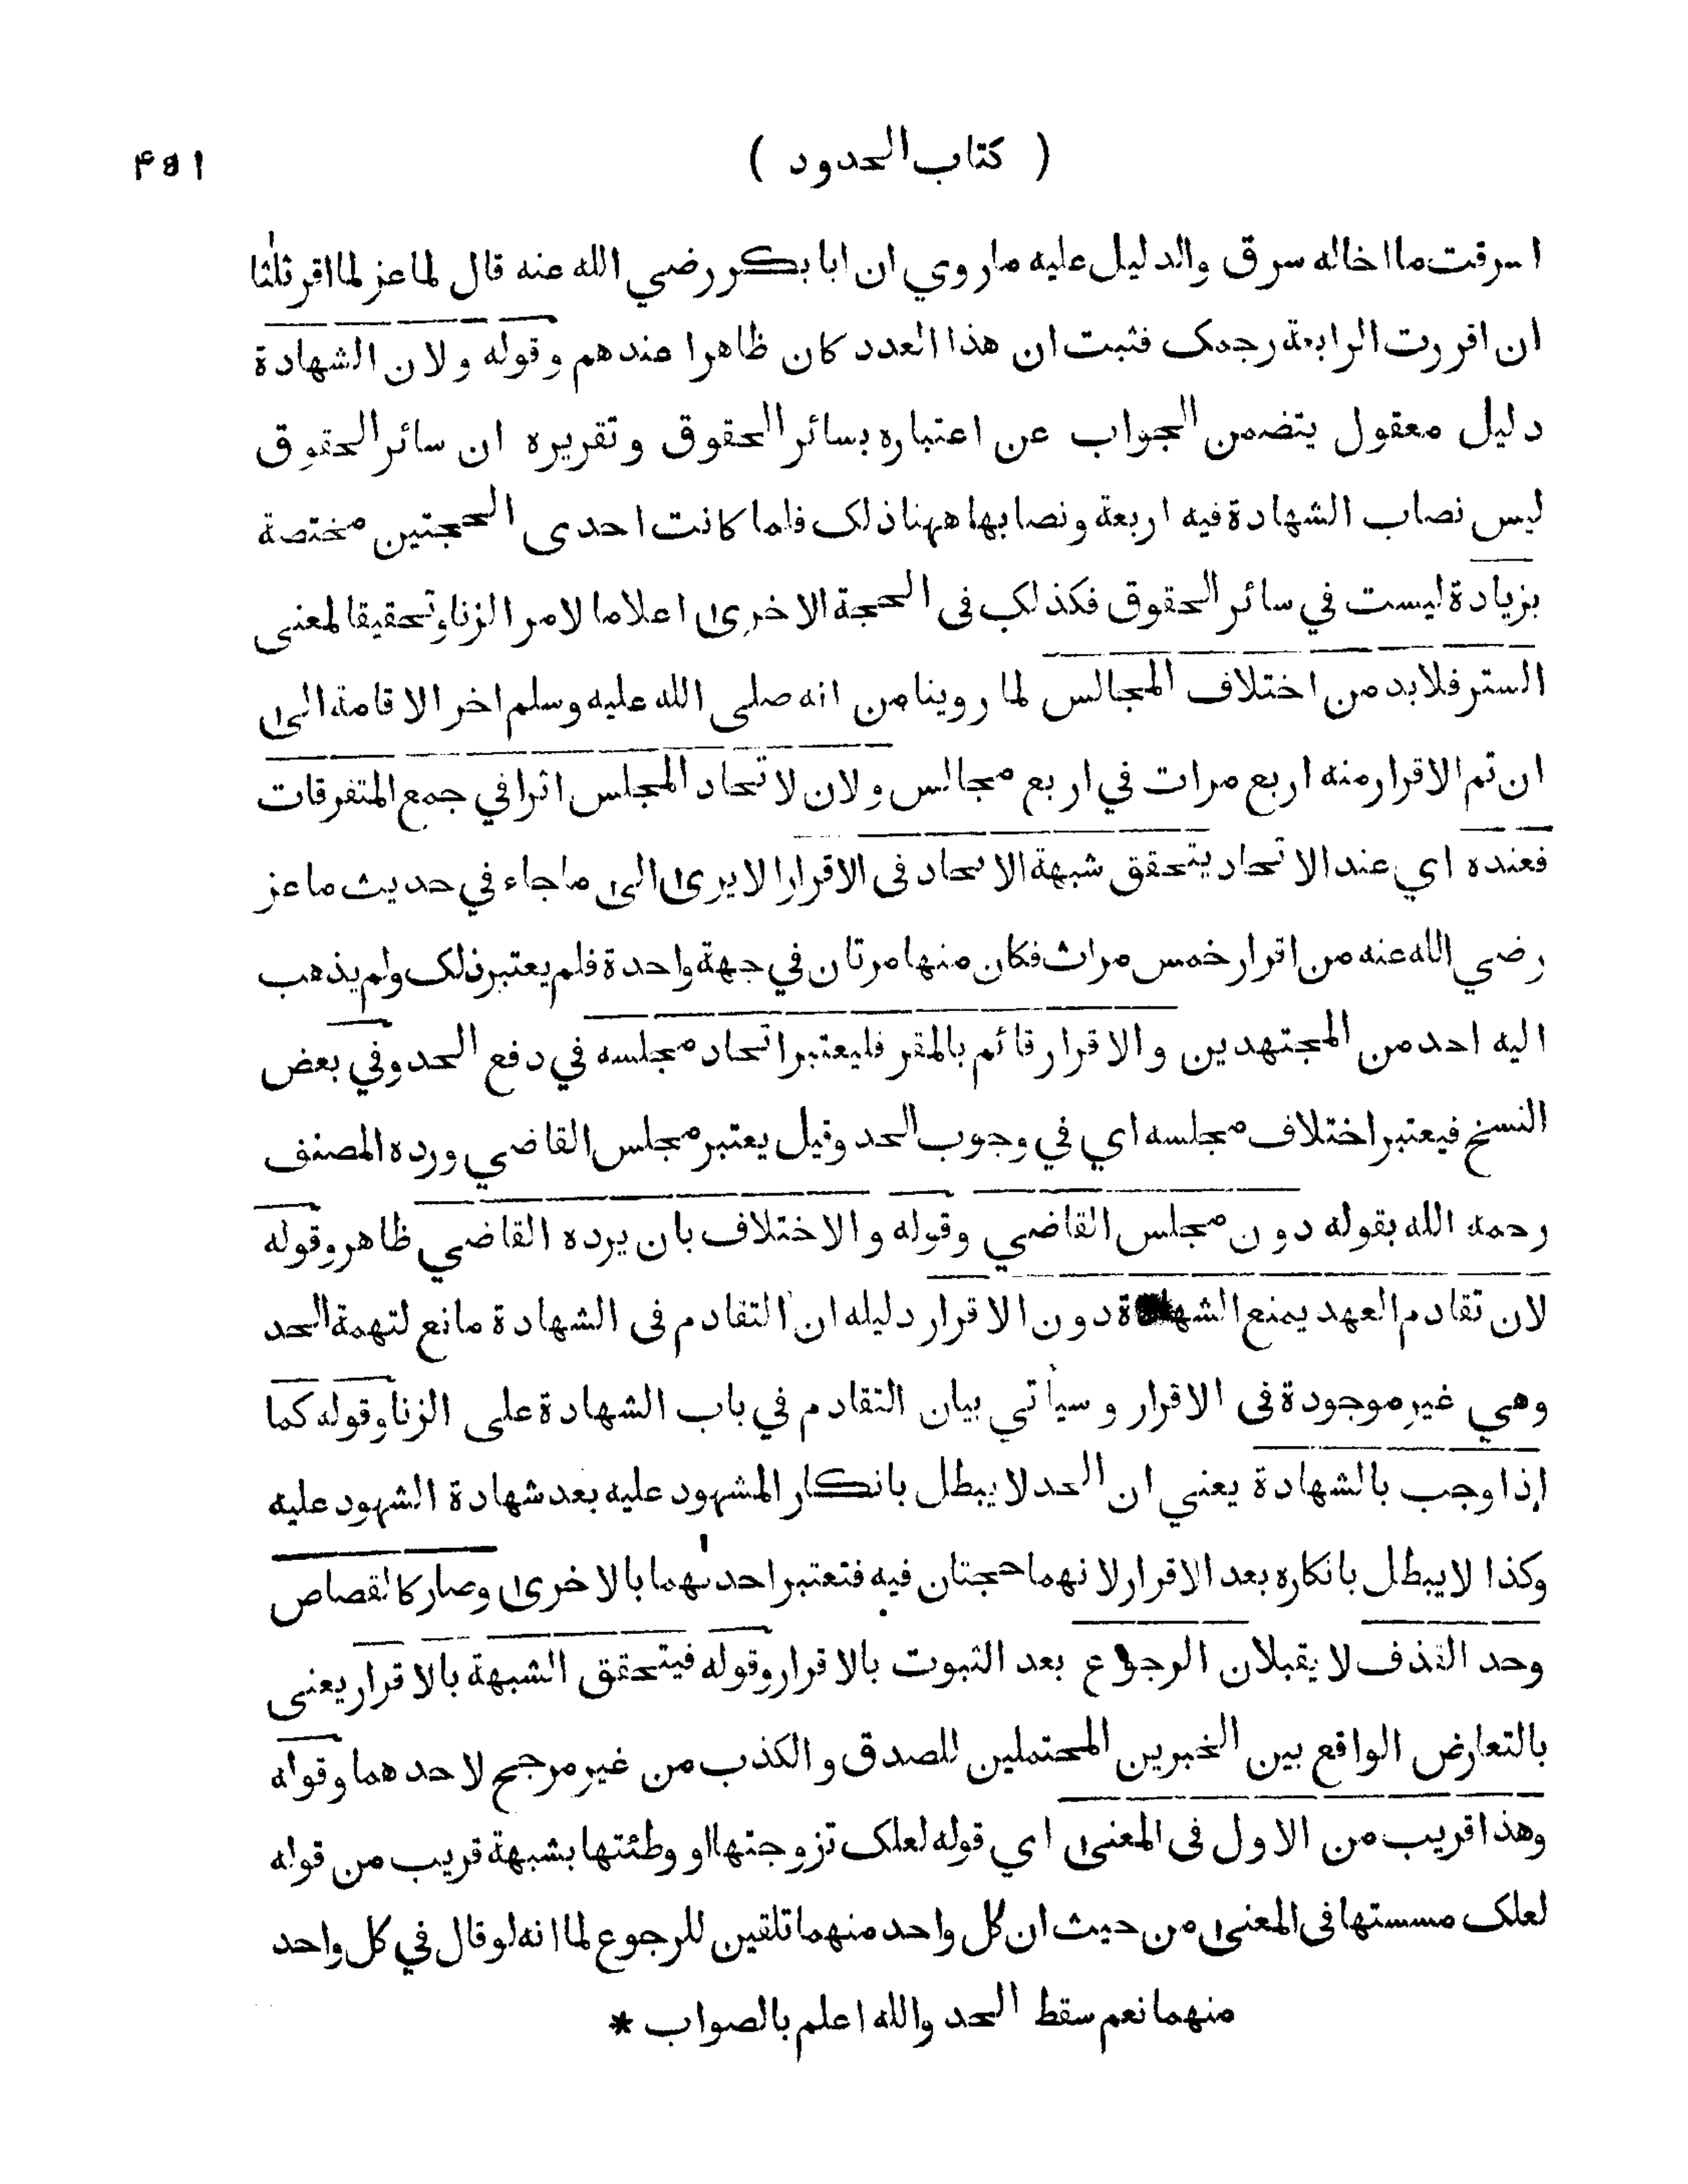 ( كتاب الحدود ) ۴۵۱
اسرقت ما اخاله سرق والدليل عليه ما روي ان ابا بكر رضي الله عنه قال لماعز لما اقر ثلثا
ان اقررت الرابعة رجمك فثبت ان هذا العدد كان ظاهرا عندهم وقوله ولان الشهادة
دليل معقول يتضمن الجواب عن اعتباره بسائر الحقوق وتقريره ان سائر الحقوق
ليس نصاب الشهادة فيه اربعة ونصابها ههنا ذلك فلما كانت احدى الحجتين مختصة
بزيادة ليست في سائر الحقوق فكذلك فى الحجة الاخرى اعلاما لامر الزنا وتحقيقا لمعنى
الستر فلابد من اختلاف المجالس لما روينا من انه صلى الله عليه وسلم اخر الاقامة الى
ان تم الاقرار منه اربع مرات في اربع مجالس ولان لاتحاد المجلس اثرا في جمع المتفرقات
فعنده اي عند الاتحاد يتحقق شبهة الاتحاد فى الاقرار الا يرى الى ما جاء في حديث ماعز
رضي الله عنه من اقرار خمس مرات فكان منها مرتان في جهة واحدة فلم يعتبر ذلك ولم يذهب
اليه احد من المجتهدين والاقرار قائم بالمقر فليعتبر اتحاد مجلسه في دفع الحد وفي بعض
النسخ فيعتبر اختلاف مجلسه اي في وجوب الحد وقيل يعتبر مجلس القاضي ورده المصنف
رحمه الله بقوله دون مجلس القاضي وقوله والاختلاف بان يرده القاضي ظاهر وقوله
لان تقادم العهد يمنع الشهادة دون الاقرار دليله ان التقادم فى الشهادة مانع لتهمة الحد
وهي غير موجودة فى الاقرار وسيأتي بيان التقادم في باب الشهادة على الزنا وقوله كما
إذا وجب بالشهادة يعني ان الحد لا يبطل بانكار المشهود عليه بعد شهادة الشهود عليه
وكذا لا يبطل بانكاره بعد الاقرار لانهما حجتان فيه فتعتبر احدىهما بالاخرى وصار كالقصاص
وحد القذف لا يقبلان الرجوع بعد الثبوت بالاقرار وقوله فيتحقق الشبهة بالاقرار يعنى
بالتعارض الواقع بين الخبرين المحتملين للصدق والكذب من غير مرجح لاحدهما وقوله
وهذا قريب من الاول فى المعنى اي قوله لعلك تزوجتها او وطئتها بشبهة قريب من قوله
لعلك مسستها فى المعنى من حيث ان كل واحد منهما تلقين للرجوع لما انه لو قال في كل واحد
منهما نعم سقط الحد والله اعلم بالصواب *